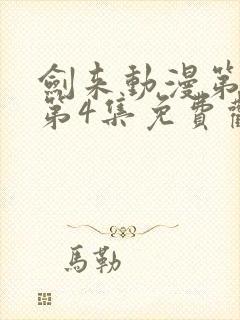 劍来動漫第
第4集免費觀
馬勒